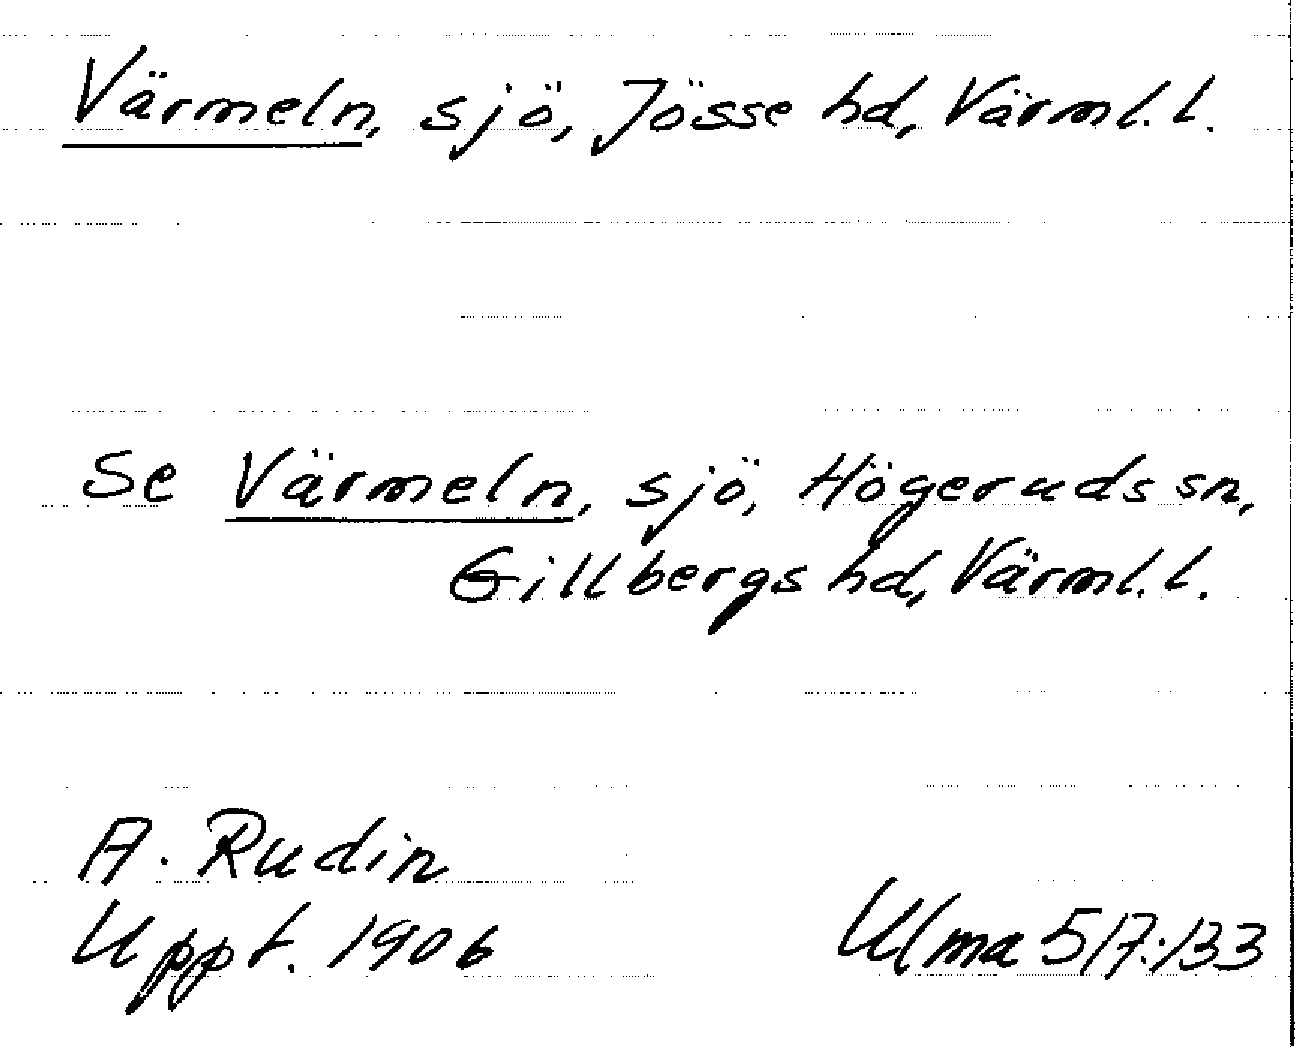 Värmeln, sjö, Jösse hd, Värml. l.
Se Värmeln, sjö, Högeruds sn,
Gillbergs hd, Värml. l.
A. Rudin
Uppt. 1906
Ulma 517:133